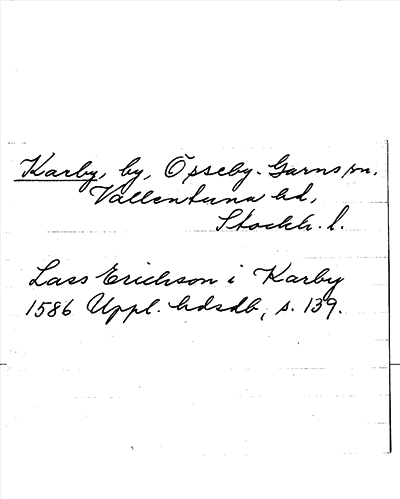 Karby, by, Össeby-Garns sn,
Vallentuna hd,
Stockh. l.
Lass Erichson i Karby
1586 Uppl. hdsdb, s. 139.